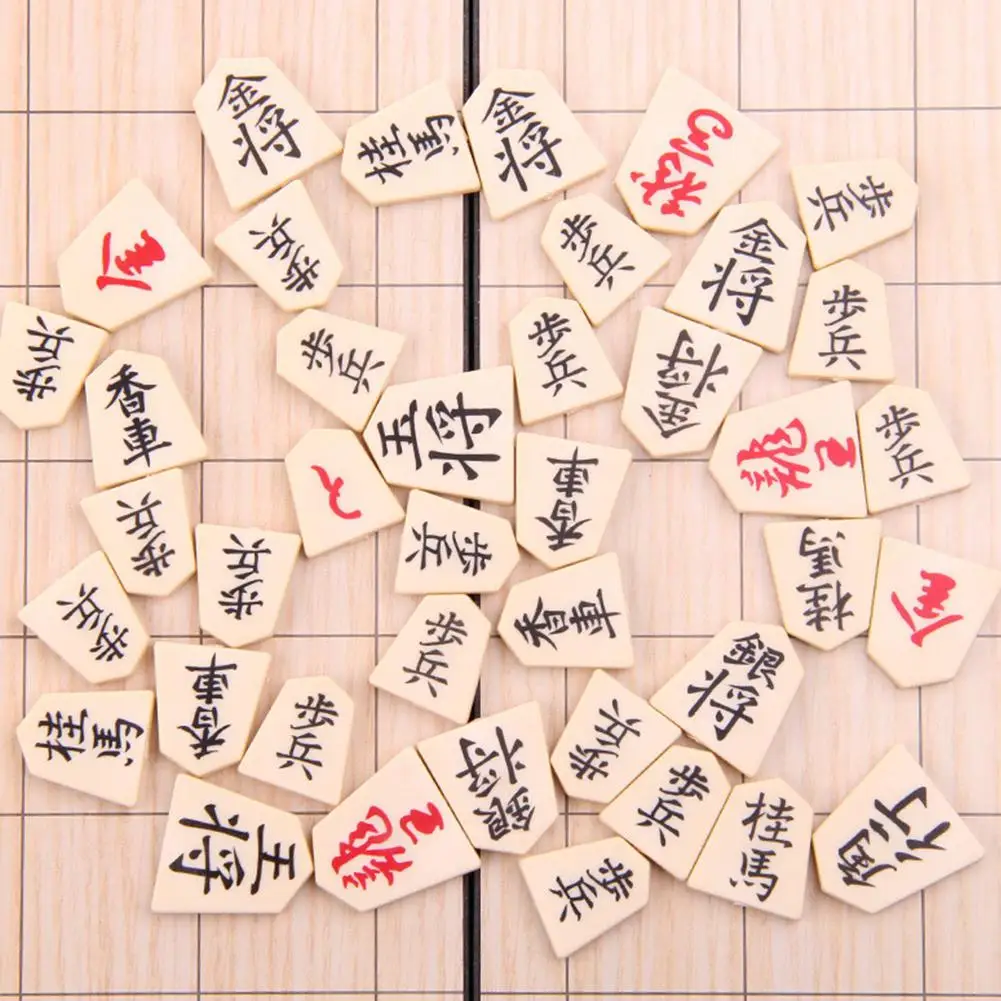 金将
桂馬
金将
龍馬
歩兵
金
歩兵
歩兵
金将
歩兵
歩兵
歩兵
歩兵
金将
香車
玉将
龍王
歩兵
歩兵
と
香車
歩兵
歩兵
歩兵
香車
桂馬
金
歩兵
銀将
桂馬
香車
歩兵
銀将
歩兵
歩兵
王将
龍王
歩兵
桂馬
角行